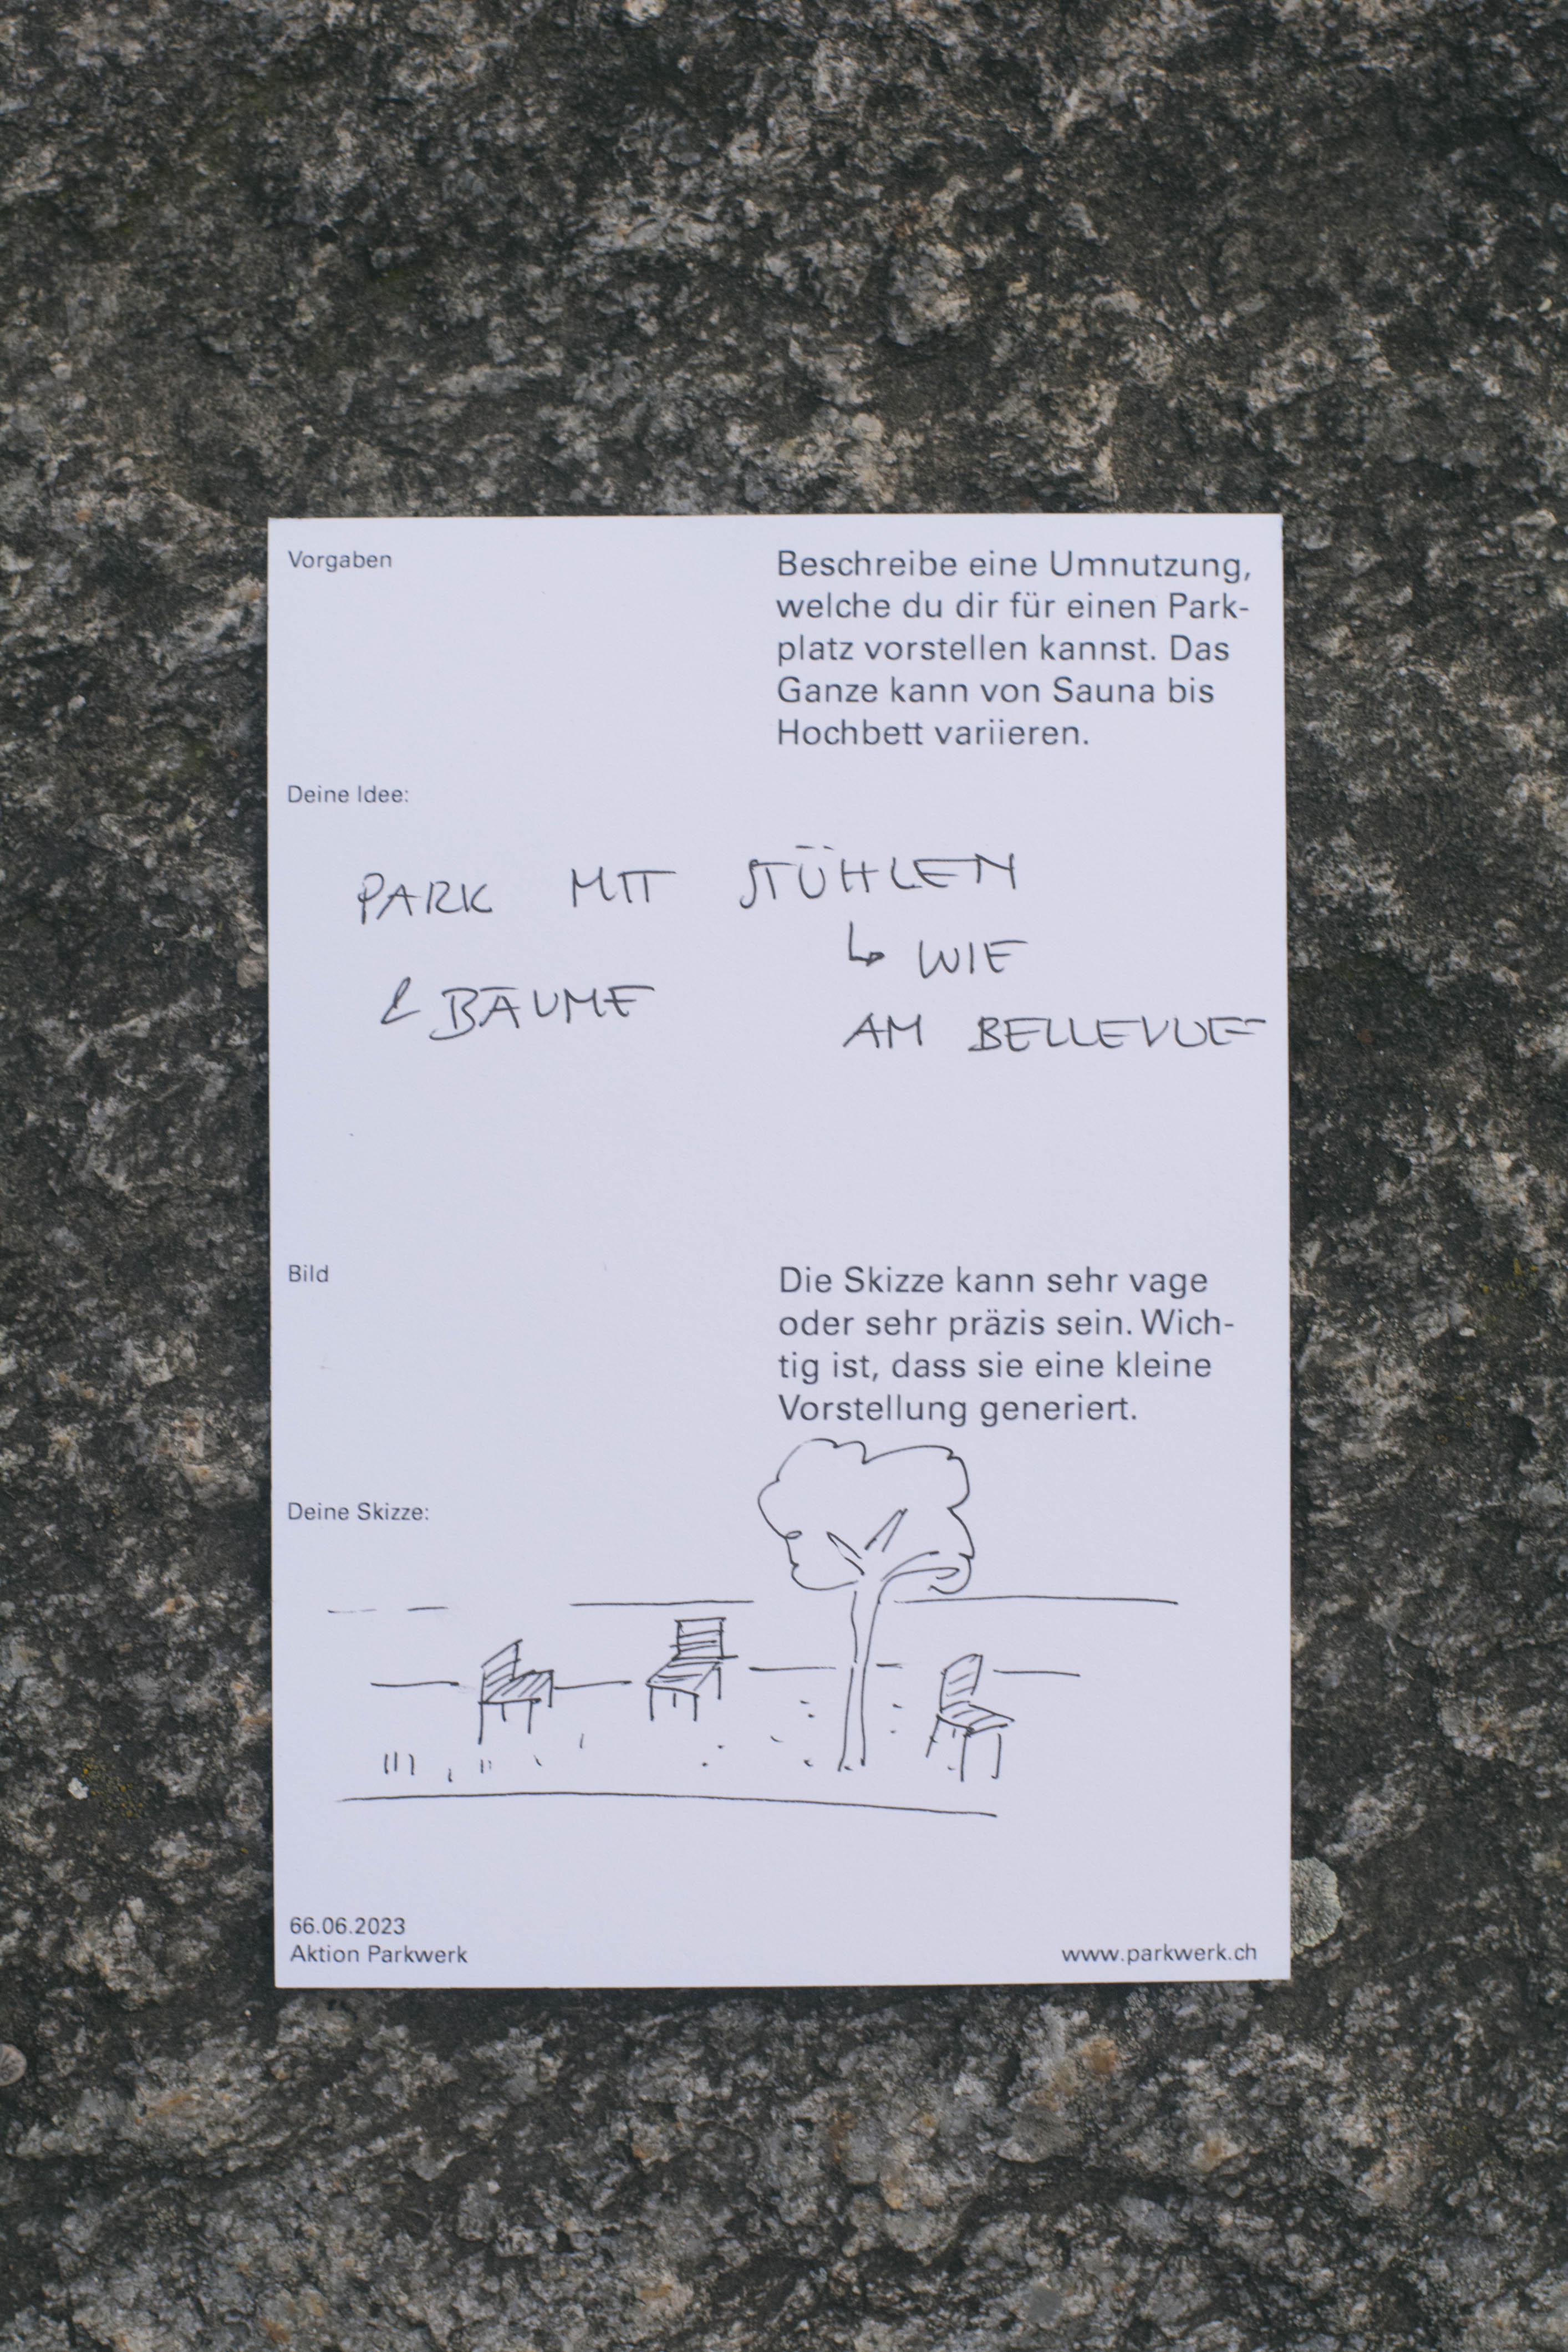 Vorgaben
Beschreibe eine Umnutzung,
welche du dir für einen Park-
platz vorstellen kannst. Das
Ganze kann von Sauna bis
Hochbett variieren.
Deine Idee:
PARK MIT STÜHLEN
↳ WIE
& BÄUME
AM BELLEVUE
Bild
Die Skizze kann sehr vage
oder sehr präzis sein. Wich-
tig ist, dass sie eine kleine
Vorstellung generiert.
Deine Skizze:
66.06.2023
Aktion Parkwerk
www.parkwerk.ch